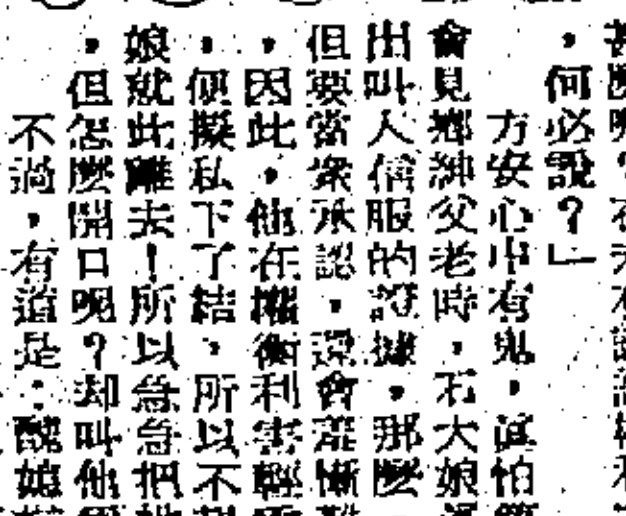 何必說？」
方安心中有鬼，眞怕
會見鄉紳父老時，石大娘
出叫人信服的證據，那麼
但要當衆承認，還會羞慚
，因此，他在權衡利害輕
，便擬私下了結，所以不
娘就此離去！所以急急把
，但怎麼開口呢？却叫他
不過，有道是：醜媳